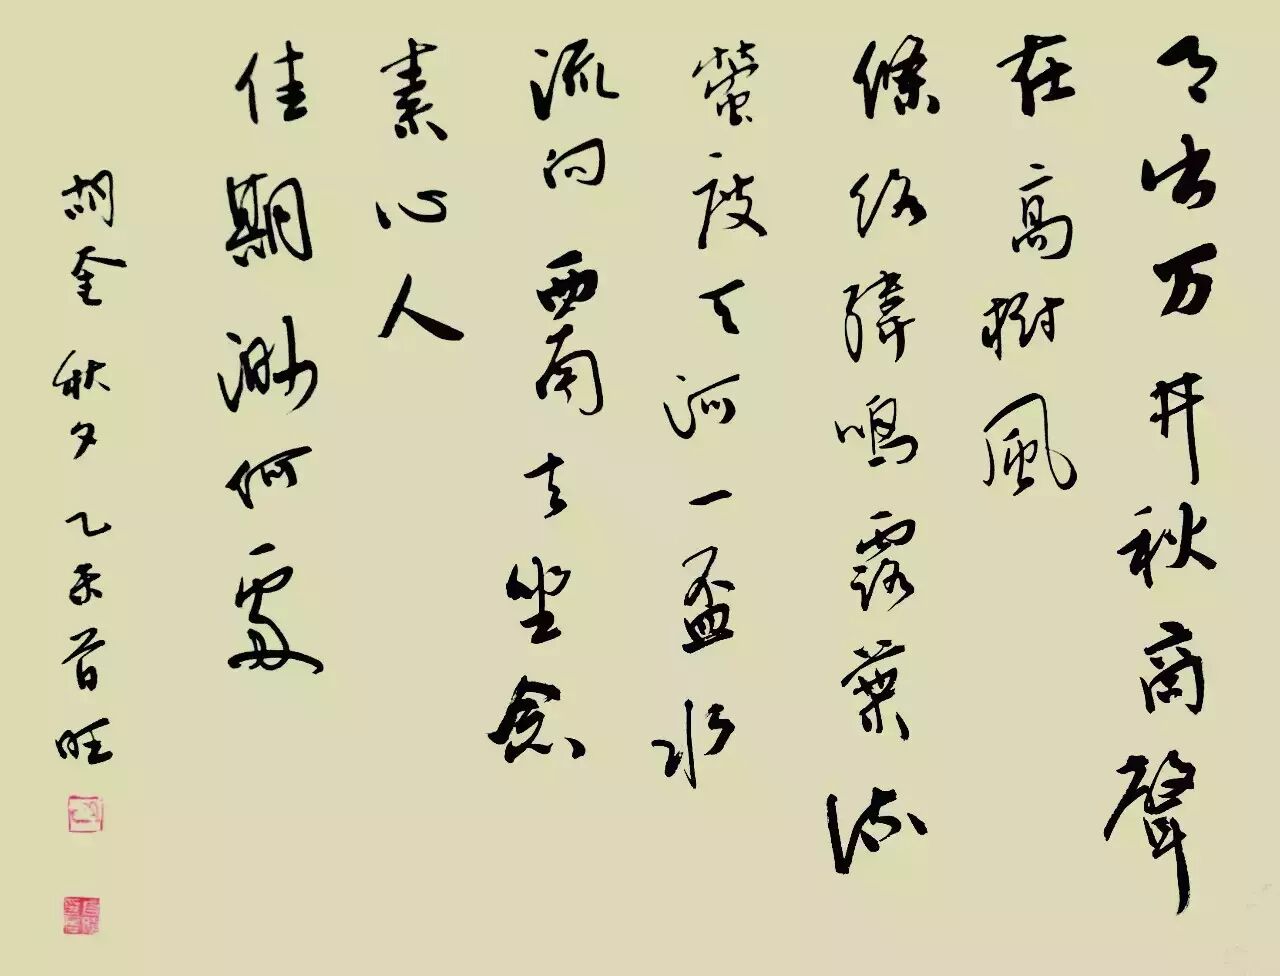 月出万井秋商聲
在高樹風
條絡緯鳴露葉流
螢度天河一盃水
流向西南去坐念
素心人
佳期渺何處
胡奎 秋夕 乙未 首旺